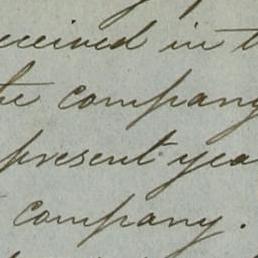 received in t
the company
present yea
company.